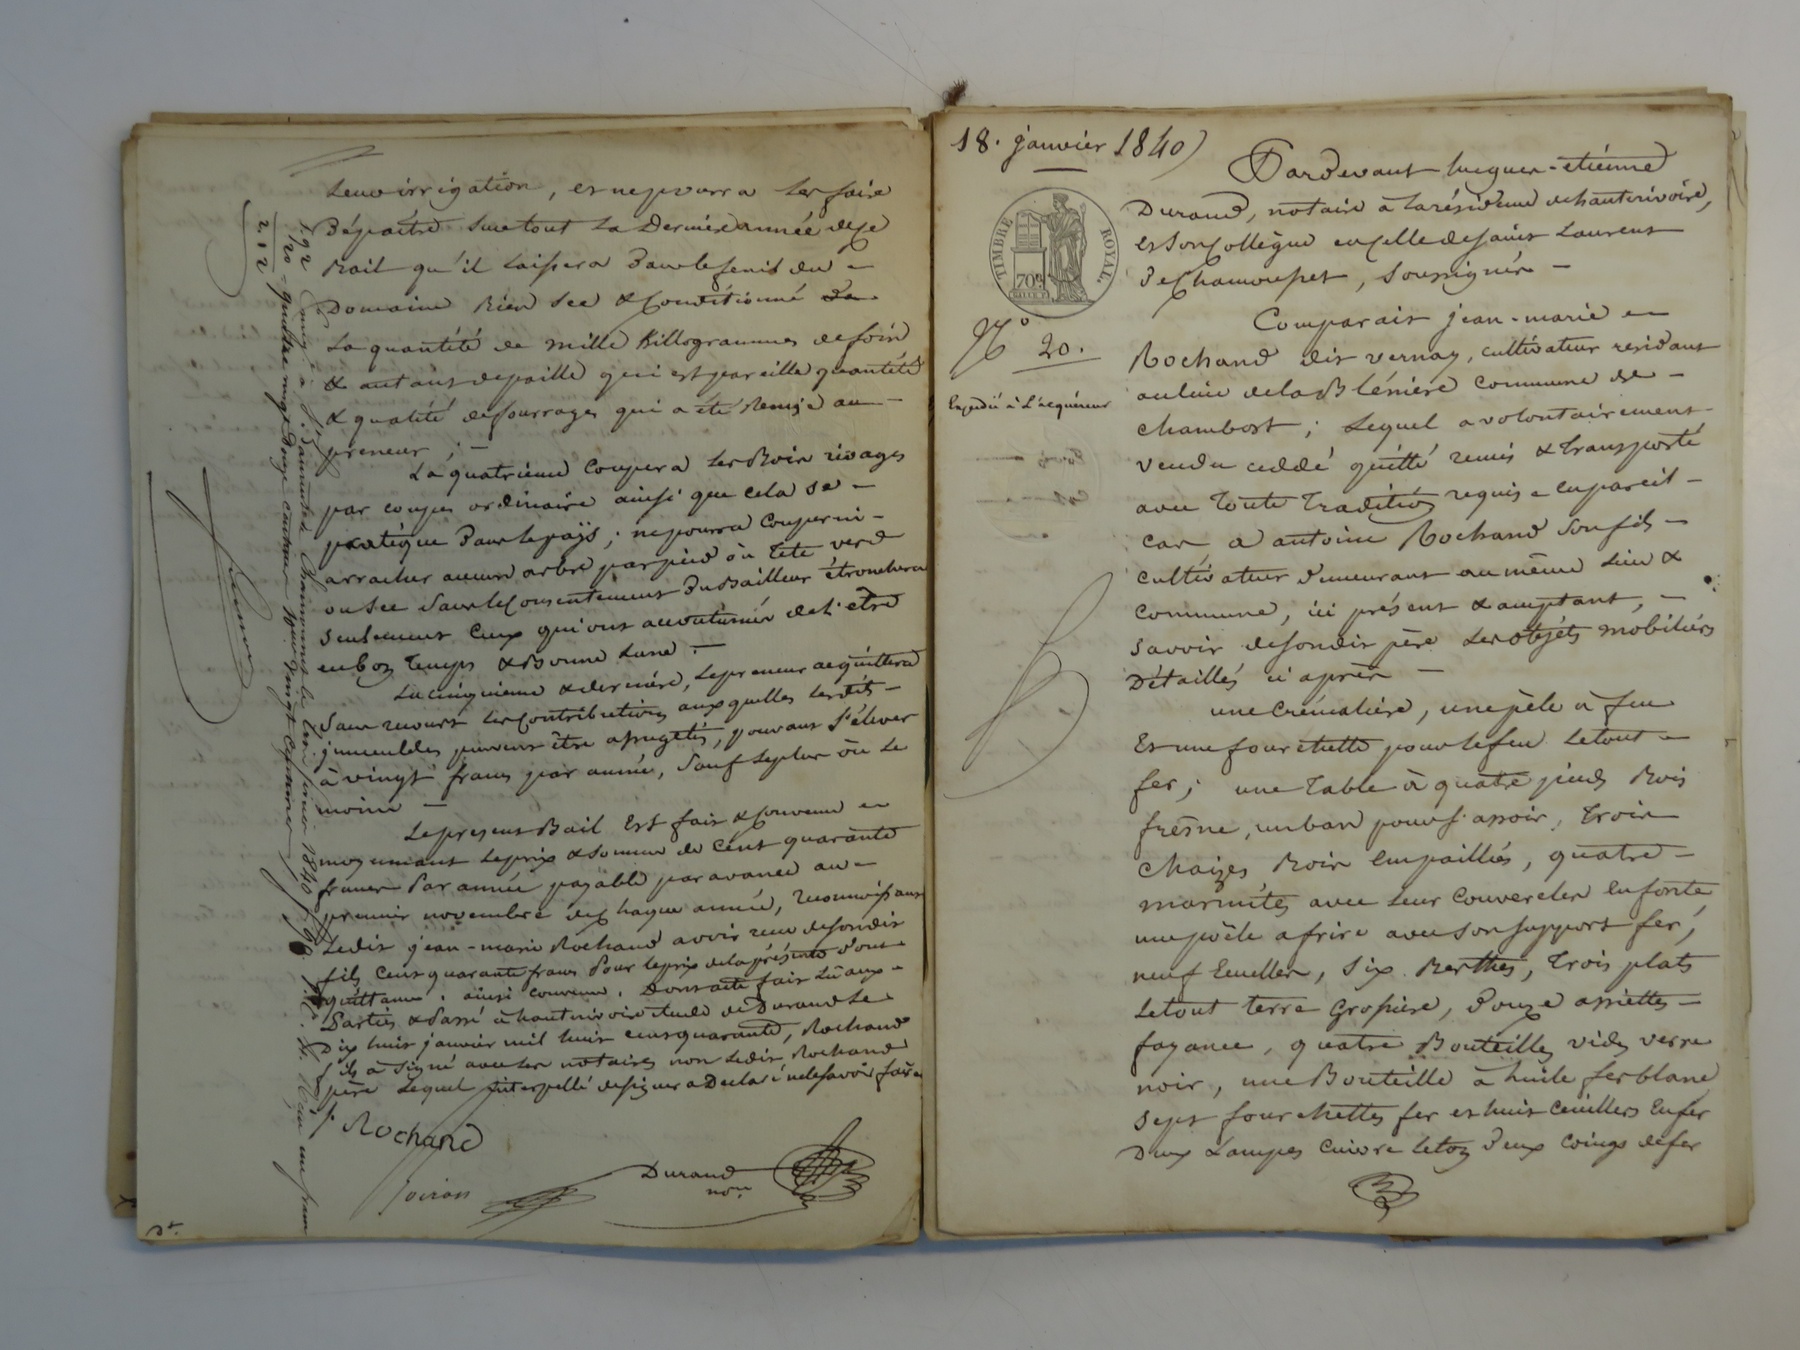 Leur irrigation, et ne pourra les faire
Dépaitre surtout la Derniere année de ce
Bail qu'il laissera Dans le fenil du
Domaine Bien sec & Conditionné
La quantité de mille Killogrammes de foin
& autant de paille qui est pareille quantité
& qualité de fourrages qui a été Remise au
preneur ;
La quatrieme Coupera les Bois rivages
par coupes ordinaire ainsi que cela se
pratique Dans le pays ; ne pourra Couper ni
arracher aucun arbre par pied où tete verd
ou sec sans le Consentement Du Bailleur étronchera
seulement Ceux qui ont accoutumés de l'etre
en bon temps & Bonne Lune.
La cinquieme & derniere, le preneur acquittera
Sans recours les Contributions auxquelles lesdits
immeubles peuvent être assugetis, pouvant s'élever
à vingt francs par année, sauf le plus où le
moins
Le present Bail Est fait & Convenu
moyennant le prix & Somme de Cent quarante
francs Par année payable par avance au
premier novembre de chaque année, reconnoissant
Ledit jean-marie Rochand avoir recu desondit
fils Cent quarante francs Pour le prix de la présente Dont
quittance. ainsi convenu. Dont acte fait Lu aux
Parties & Passé à hauterivoire étude de Durand Le
Dix huit janvier mil huit cent quarante, Rochand
fils à signé avec les notaires non Ledit Rochand
père Lequel interpellé designer a Declaré ne le savoir faire
Rochand
Durand
nore
192
20
212
18. janvier 1840
Pardevant hugues-etiénne
Durand, notaire à la résidence de hauterivoire,
et Son Collègue en celle de saint Laurent
De Chamousset, Soussignés
TIMBRE ROYAL
70c
N° 20.
Expedié à L'acquéreur
Comparait jean-marie
Rochand dit vernay, cultivateur residant
au lieu de la Blénière commune de
chambost ; Lequel a volontairement
vendu cédé quitté remis & transporté
avec toute tradition requise en pareil
cas a antoine Rochand son fils
cultivateur Demeurant au même Lieu &
commune, ici présent & acceptant,
savoir desondit père Les objéts mobiliérs
Détaillés ci après
une Crémaliére, une pèle à feu
Et une fourchette pour le feu le tout
fer ; une table à quatre pieds Bois
frêsne, un banc pour s'assoir, trois
Chaizes Bois Empaillés, quatre
marmites avec Leur Couvercles En fonte,
une poële a frire avec son support fer,
neuf Ecuelles, six Berthes, trois plats
Le tout terre Grossiere, Douze assiettes
fayance, quatre Bouteilles vides verre
noir, une Bouteille à huile fer blanc
sept fourchettes fer et huit Ceuillers En fer
Deux Lampes Cuivre leton Deux Coings de fer